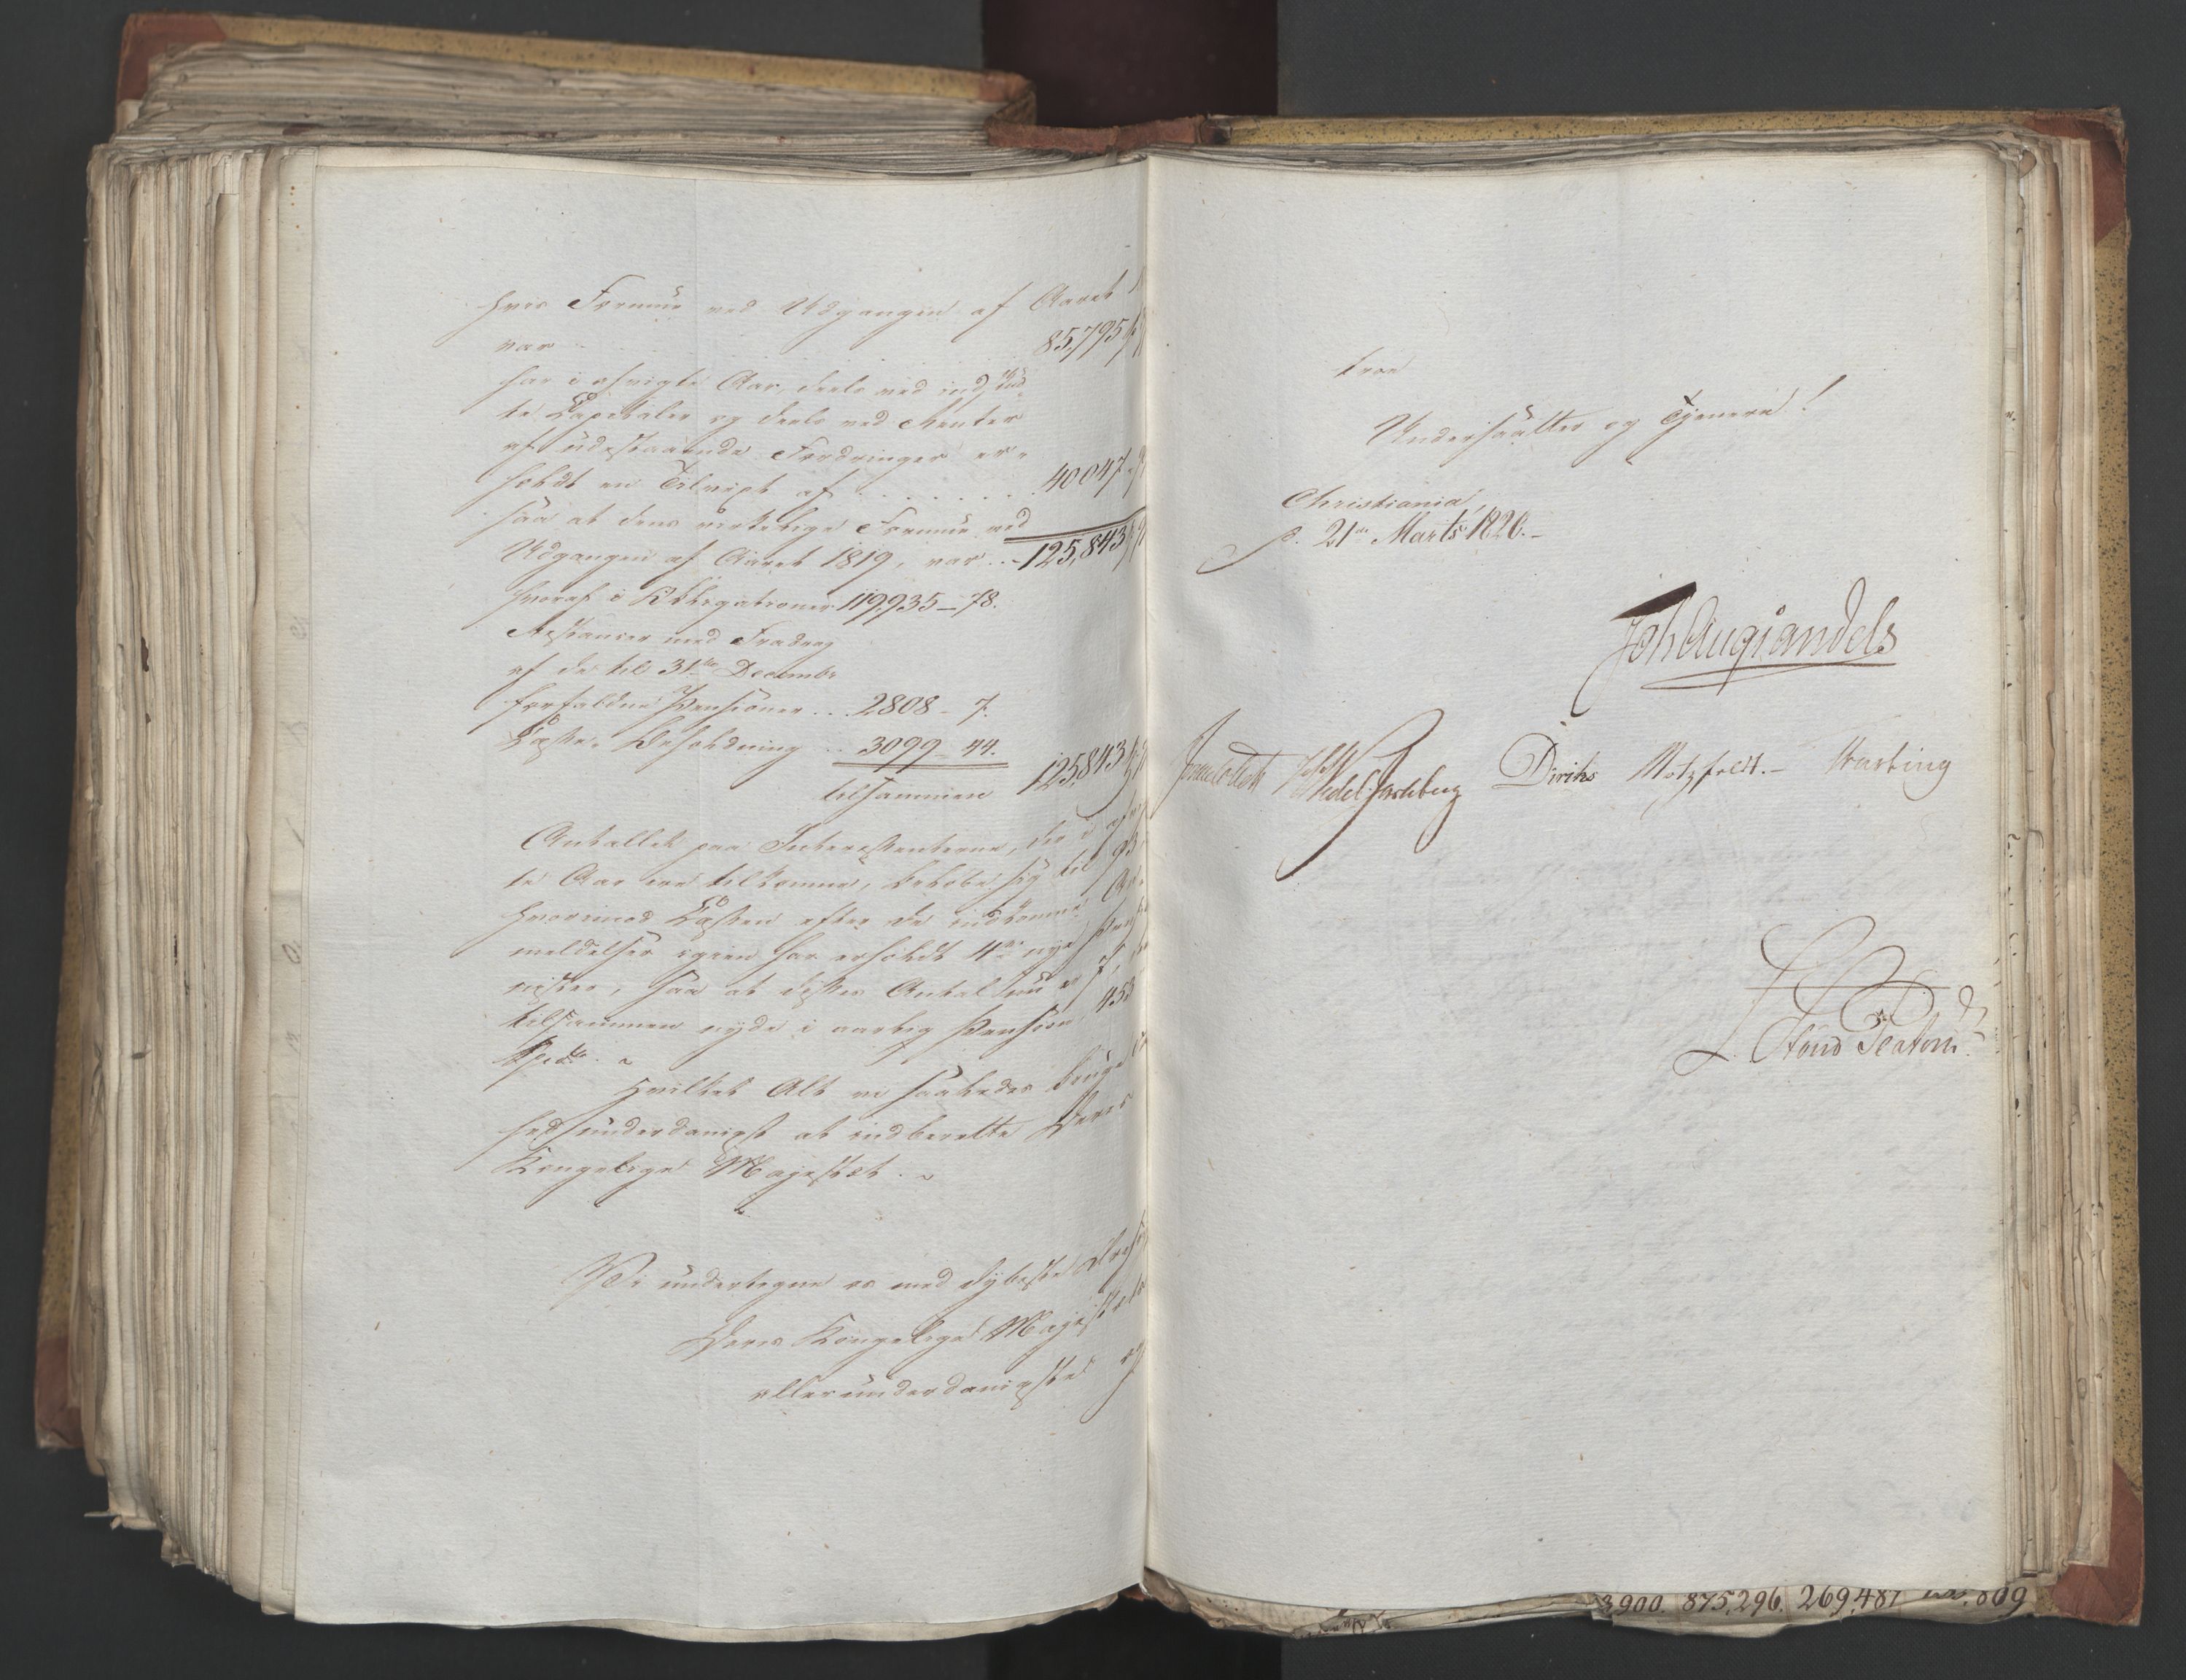 hvis Formue ved Udgangen af Aaret
var . . . 85,795
har i afvigte Aar, deels ved ind
te Capitaler og deels ved Renter
af udestaaende Fordringer er-
holdt en Tilvext af . . . . . . . 40047
saa at dens virkelige Formue ved
Udgangen af Aaret 1819, var . . - 125,843
hvoraf i Obligationer 119,935 – 78.
Restancer med Fradrag
af de til 31te Decembr
forfaldne Pensioner . . . 2808 – 7.
Casse-Beholdning . . 3099 – 44.
tilsammen 125,843
Antallet paa Interessenterne, der i
te Aar ere tilkomne, beløbe sig til 95
hvorimod Cassen efter de indkomne An-
meldelser igien har erholdt 4re nye
nister, saa at disses Antal nu er 7,
tilsammen nyde i aarlig Pension 453
Spdlr. ~
Hvilket Alt vi saaledes
hed underdanigst at indberette Deres
Kongelige Majestæt. ~
Vi undertegne os med dybeste
Deres Kongelige Majestæts
allerunderdanigste og
troe
Undersaatter og Tjenere!
Christiania,
d. 21de Marts 1820. –
Joh Aug Sandels
Sommerhielm HWedel Jarlsberg Diriks Motzfeldt. – Krebting
L. Stoud Platou.
3900. 875,296. 269,481 809